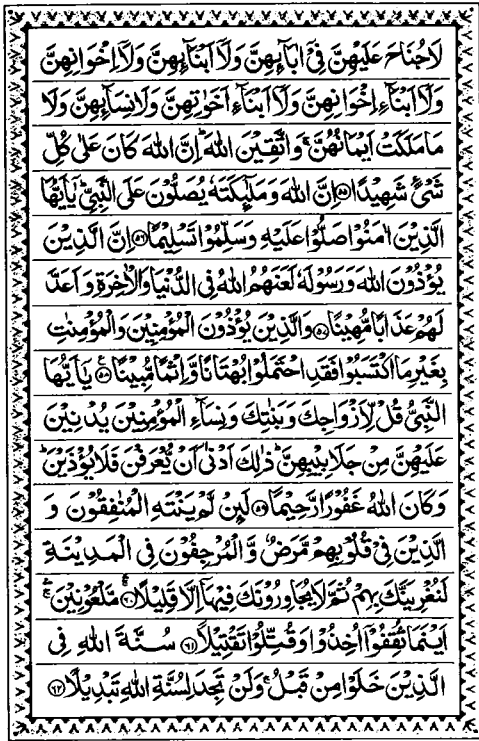 لَا جُنَاحَ عَلَیْهِنَّ فِیْۤ اٰبَآىِٕهِنَّ وَلَاۤ اَبْنَآىِٕهِنَّ وَلَاۤ اِخْوَانِهِنَّ
وَلَاۤ اَبْنَآءِ اِخْوَانِهِنَّ وَلَاۤ اَبْنَآءِ اَخَوٰتِهِنَّ وَلَا نِسَآىِٕهِنَّ وَلَا
مَا مَلَكَتْ اَیْمَانُهُنَّ ۚ وَاتَّقِیْنَ اللّٰهَ ؕ اِنَّ اللّٰهَ كَانَ عَلٰی كُلِّ
شَیْءٍ شَهِیْدًا ﴿۵۵﴾ اِنَّ اللّٰهَ وَمَلٰٓىِٕكَتَهٗ یُصَلُّوْنَ عَلَی النَّبِیِّ ؕ یٰۤاَیُّهَا
الَّذِیْنَ اٰمَنُوْا صَلُّوْا عَلَیْهِ وَسَلِّمُوْا تَسْلِیْمًا ﴿۵۶﴾ اِنَّ الَّذِیْنَ
یُؤْذُوْنَ اللّٰهَ وَرَسُوْلَهٗ لَعَنَهُمُ اللّٰهُ فِی الدُّنْیَا وَالْاٰخِرَةِ وَاَعَدَّ
لَهُمْ عَذَابًا مُّهِیْنًا ﴿۵۷﴾ وَالَّذِیْنَ یُؤْذُوْنَ الْمُؤْمِنِیْنَ وَالْمُؤْمِنٰتِ
بِغَیْرِ مَا اكْتَسَبُوْا فَقَدِ احْتَمَلُوْا بُهْتَانًا وَّاِثْمًا مُّبِیْنًا ﴿۵۸﴾ یٰۤاَیُّهَا
النَّبِیُّ قُلْ لِّاَزْوَاجِكَ وَبَنٰتِكَ وَنِسَآءِ الْمُؤْمِنِیْنَ یُدْنِیْنَ
عَلَیْهِنَّ مِنْ جَلَابِیْبِهِنَّ ؕ ذٰلِكَ اَدْنٰۤی اَنْ یُّعْرَفْنَ فَلَا یُؤْذَیْنَ ؕ
وَكَانَ اللّٰهُ غَفُوْرًا رَّحِیْمًا ﴿۵۹﴾ لَىِٕنْ لَّمْ یَنْتَهِ الْمُنٰفِقُوْنَ وَ
الَّذِیْنَ فِیْ قُلُوْبِهِمْ مَّرَضٌ وَّالْمُرْجِفُوْنَ فِی الْمَدِیْنَةِ
لَنُغْرِیَنَّكَ بِهِمْ ثُمَّ لَا یُجَاوِرُوْنَكَ فِیْهَاۤ اِلَّا قَلِیْلًا ﴿۶۰﴾ مَّلْعُوْنِیْنَ ۛۚ
اَیْنَمَا ثُقِفُوْۤا اُخِذُوْا وَقُتِّلُوْا تَقْتِیْلًا ﴿۶۱﴾ سُنَّةَ اللّٰهِ فِی
الَّذِیْنَ خَلَوْا مِنْ قَبْلُ ۚ وَلَنْ تَجِدَ لِسُنَّةِ اللّٰهِ تَبْدِیْلًا ﴿۶۲﴾